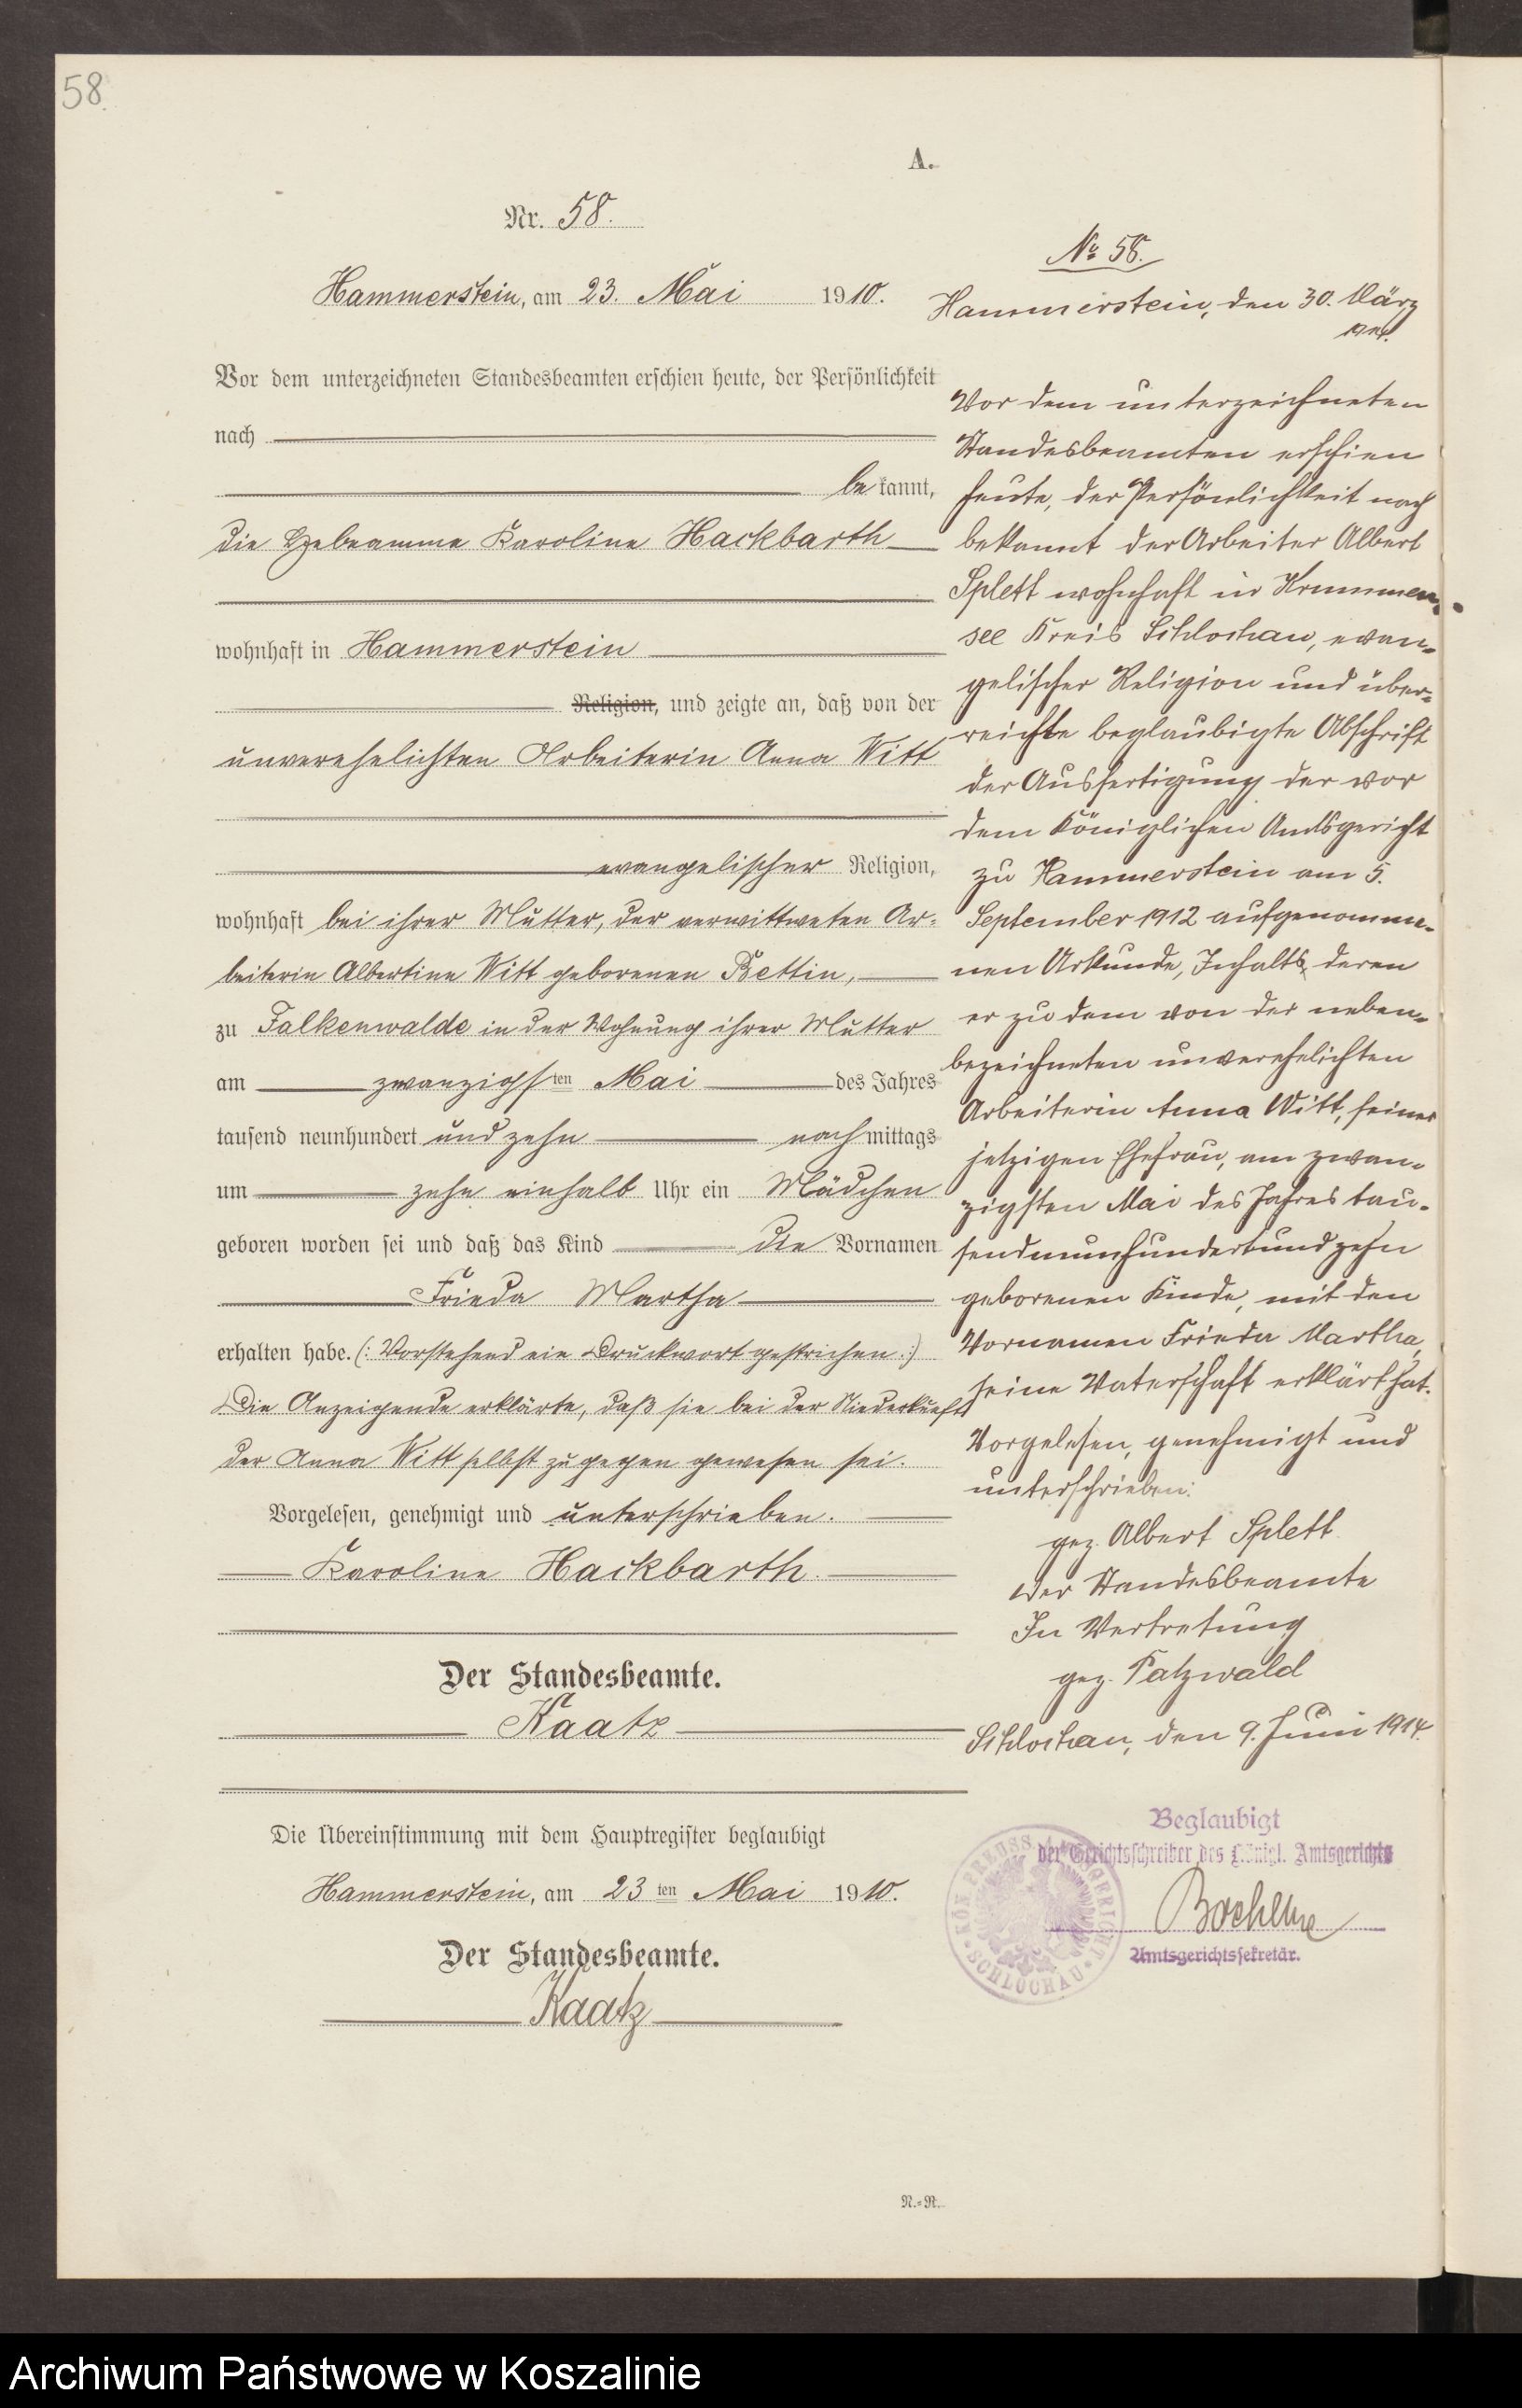 58.
A.
Nr. 58.
Hammerstein, am 23. Mai 1910.
Vor dem unterzeichneten Standesbeamten erschien heute, der Persönlichkeit
nach
bekannt,
die Hebeamme Karoline Hackbarth
wohnhaft in Hammerstein
Religion, und zeigte an, daß von der
unverehelichten Arbeiterin Anna Witt
evangelischer Religion,
wohnhaft bei ihrer Mutter, der verwittweten Ar-
beiterin Albertine Witt geborenen Bettin,
zu Falkenwalde in der Wohnung ihrer Mutter
am zwanzigsten Mai des Jahres
tausend neunhundert und zehn nachmittags
um zehn einhalb Uhr ein Mädchen
geboren worden sei und daß das Kind die Vornamen
Frieda Martha
erhalten habe. (: Vorstehend ein Druckwort gestrichen :)
Die Anzeigende erklärte, daß sie bei der Niederkunft
der Anna Witt selbst zugegen gewesen sei.
Vorgelesen, genehmigt und unterschrieben.
Karoline Hackbarth.
Der Standesbeamte.
Kaatz
Die Übereinstimmung mit dem Hauptregister beglaubigt
Hammerstein, am 23ten Mai 1910.
Der Standesbeamte.
Kaatz
N.=R.
No 58.
Hammerstein, den 30. März
Vor dem unterzeichneten
Standesbeamten erschien
heute, der Persönlichkeit nach
bekannt der Arbeiter Albert
Splett wohnhaft in Krummen-
see Kreis Schlochau, evan-
gelischer Religion und über-
reichte beglaubigte Abschrift
der Ausfertigung der vor
dem Königlichen Amtsgericht
zu Hammerstein am 5.
September 1912 aufgenomme-
nen Urkunde, Inhalts deren
er zu dem von der neben-
bezeichneten unverehelichten
Arbeiterin Anna Witt, seiner
jetzigen Ehefrau, am zwan-
zigsten Mai des Jahres tau-
sendneunhundertundzehn
geborenen Kinde, mit den
Vornamen Frieda Martha,
seine Vaterschaft erklärt hat.
Vorgelesen, genehmigt und
unterschrieben:
gez. Albert Splett
Der Standesbeamte
In Vertretung
gez. Patzwald
Schlochau, den 9. Juni 1914.
Beglaubigt
der Gerichtsschreiber des Königl. Amtsgerichts
Amtsgerichtssekretär.
KÖN. PREUSS. AMTSGERICHT SCHLOCHAU
Archiwum Państwowe w Koszalinie